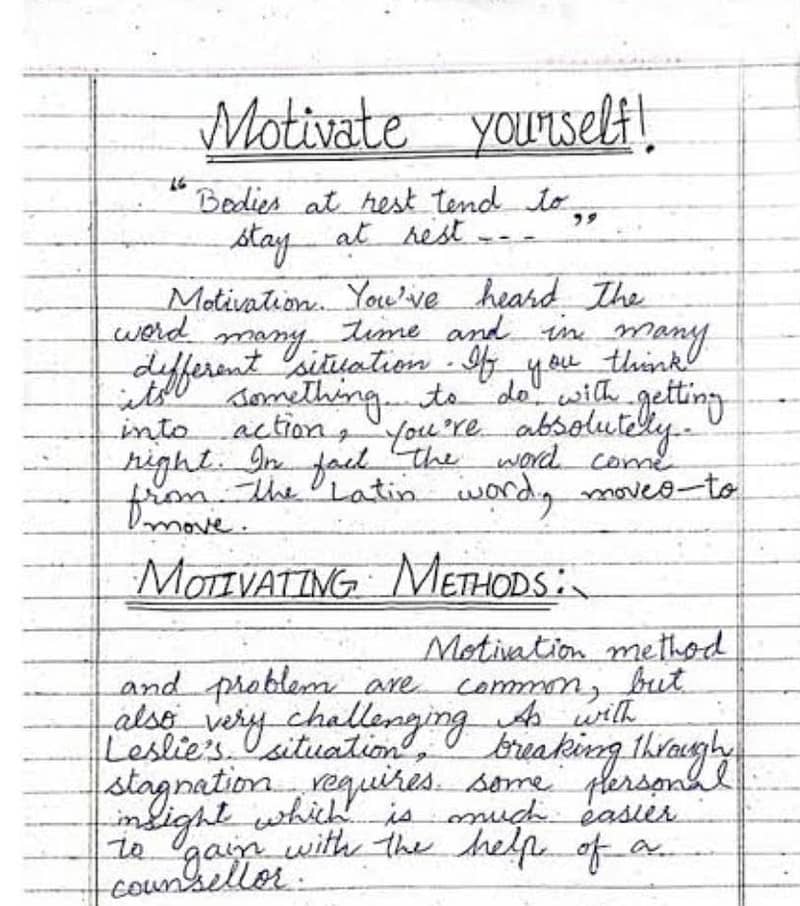 Motivate yourself!
"Bodies at rest tend to
stay at rest ---"
Motivation. You've heard The
word many time and in many
different situation. If you think
its something to do with getting
into action, you're absolutely.
right. In fact the word come
from the Latin word, moveo-to
move.
MOTIVATING METHODS:
Motivation method
and problem are common, but
also very challenging As with
Leslie's situation, breaking through
stagnation requires some personal
insight which is much easier
to gain with the help of a
counsellor.